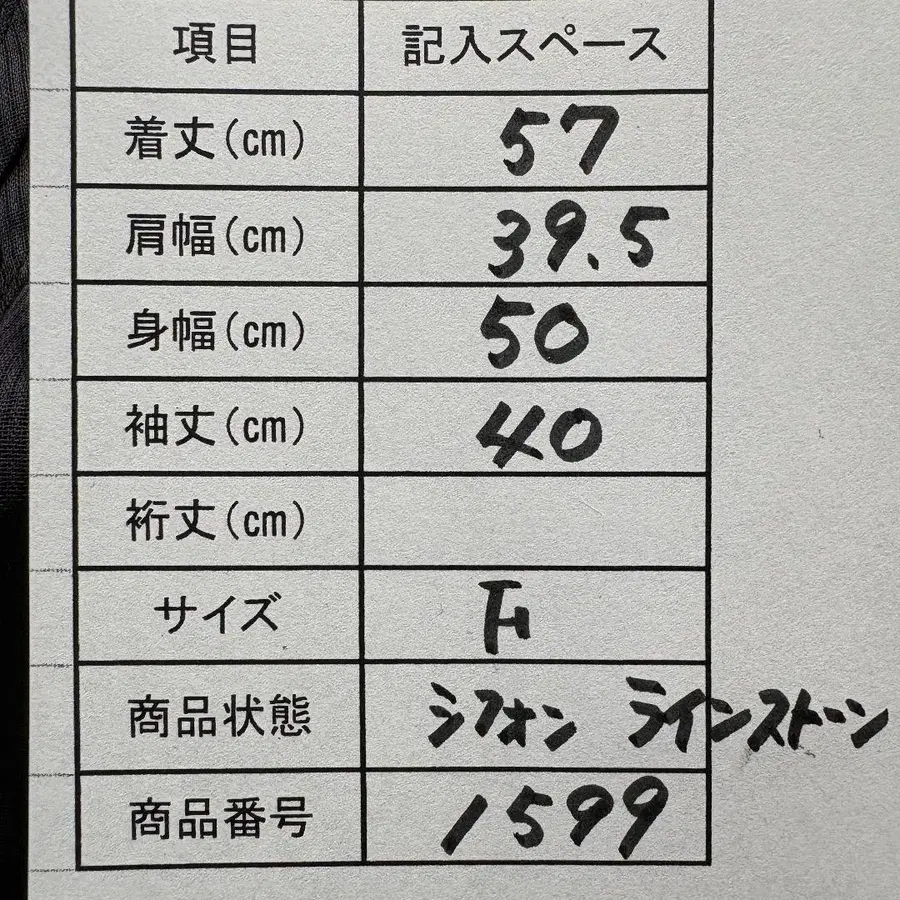 項目 記入スペース
着丈(cm) 57
肩幅(cm) 39.5
身幅(cm) 50
袖丈(cm) 40
裄丈(cm)
サイズ F
商品状態 シフォン ラインストーン
商品番号 1599